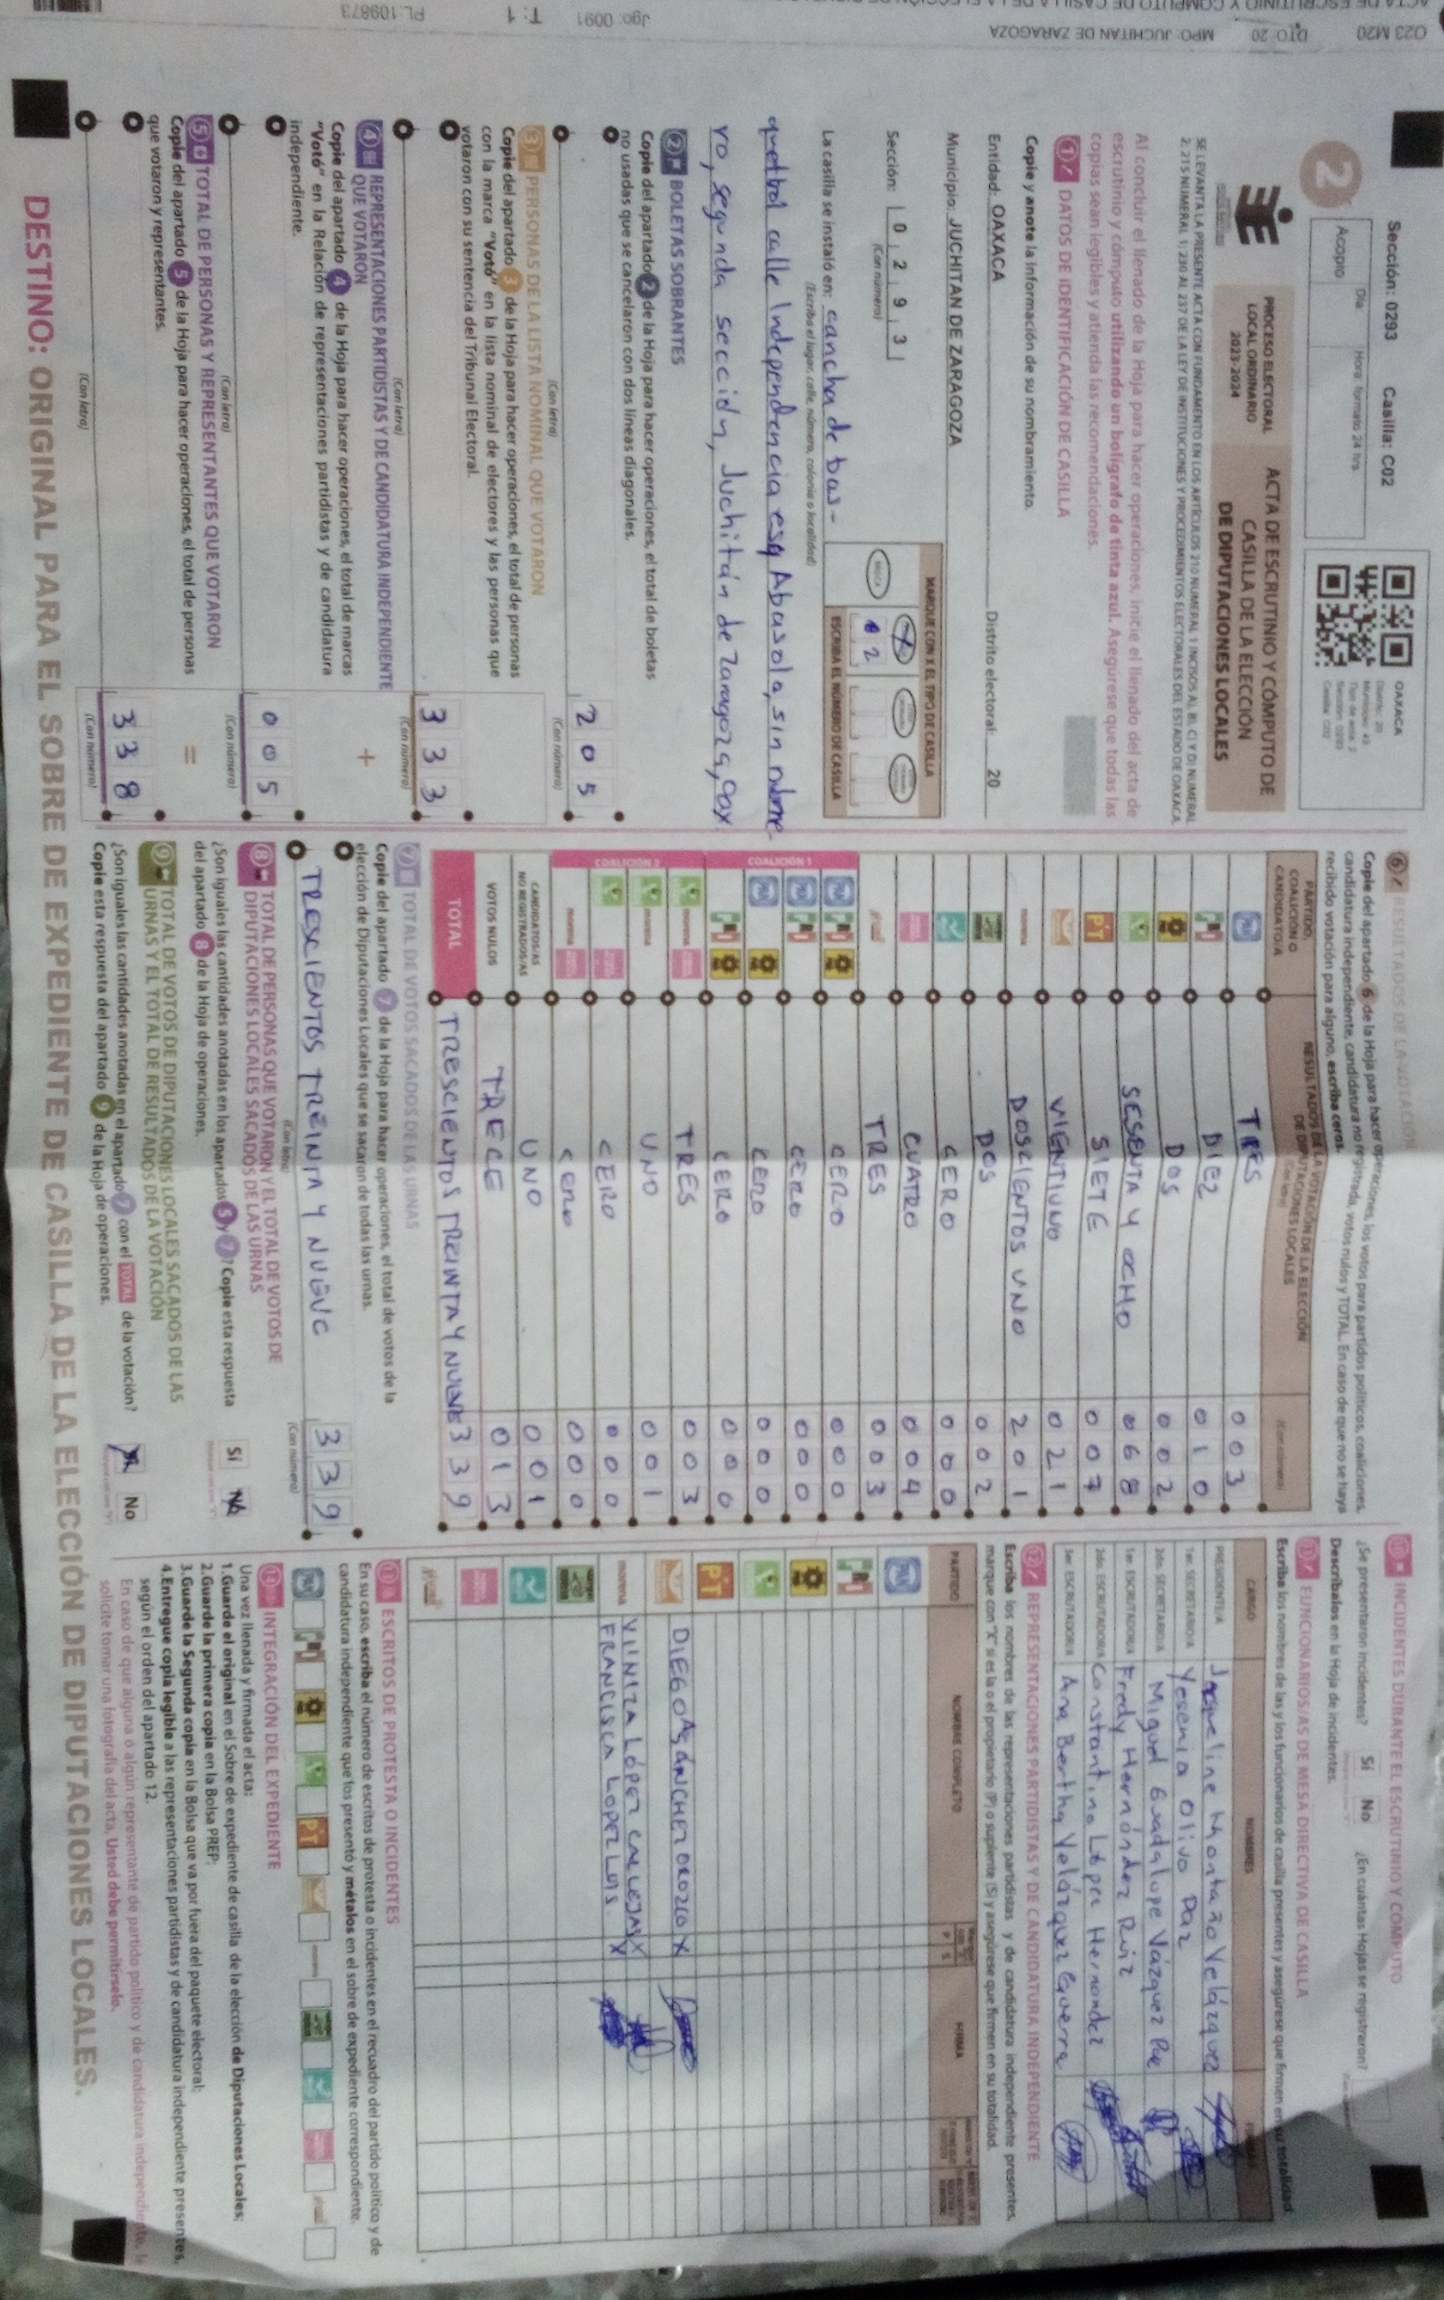 023 M20 DTO: 20 MPO: JUCHITAN DE ZARAGOZA Jgo: 0091 T: 1 PL: 109873
Sección: 0293 Casilla: C02
Día: Hora: formato 24 hrs.
Acopio
2
OAXACA
PROCESO ELECTORAL
LOCAL ORDINARIO
2023-2024
ACTA DE ESCRUTINIO Y CÓMPUTO DE
CASILLA DE LA ELECCIÓN
DE DIPUTACIONES LOCALES
SE LEVANTA LA PRESENTE ACTA CON FUNDAMENTO EN LOS ARTÍCULOS 210 NUMERAL 1 INCISOS A), B), C) Y D) NUMERAL
2; 215 NUMERAL 1; 230 AL 237 DE LA LEY DE INSTITUCIONES Y PROCEDIMIENTOS ELECTORALES DEL ESTADO DE OAXACA.
Al concluir el llenado de la Hoja para hacer operaciones, inicie el llenado del acta de
escrutinio y cómputo utilizando un bolígrafo de tinta azul. Asegúrese que todas las
copias sean legibles y atienda las recomendaciones.
1 DATOS DE IDENTIFICACIÓN DE CASILLA
Copie y anote la información de su nombramiento.
Entidad: OAXACA Distrito electoral: 20
Municipio: JUCHITAN DE ZARAGOZA
Sección: 0 2 9 3
(Con número)
MARQUE CON X EL TIPO DE CASILLA
X
BÁSICA
0 2
ESCRIBA EL NÚMERO DE CASILLA
La casilla se instaló en: cancha de bas-
(Escriba el lugar, calle, número, colonia o localidad)
quetbol calle Independencia esq Abasolo, sin núme-
ro, segunda sección, Juchitán de Zaragoza, Oax
2 BOLETAS SOBRANTES
Copie del apartado 2 de la Hoja para hacer operaciones, el total de boletas
no usadas que se cancelaron con dos líneas diagonales.
2 0 5
(Con letra) (Con número)
3 PERSONAS DE LA LISTA NOMINAL QUE VOTARON
Copie del apartado 3 de la Hoja para hacer operaciones, el total de personas
con la marca "Votó" en la lista nominal de electores y las personas que
votaron con su sentencia del Tribunal Electoral.
3 3 3
(Con letra) (Con número)
4 REPRESENTACIONES PARTIDISTAS Y DE CANDIDATURA INDEPENDIENTE
QUE VOTARON
+
Copie del apartado 4 de la Hoja para hacer operaciones, el total de marcas
"Votó" en la Relación de representaciones partidistas y de candidatura
independiente.
0 0 5
(Con letra) (Con número)
5 TOTAL DE PERSONAS Y REPRESENTANTES QUE VOTARON
=
Copie del apartado 5 de la Hoja para hacer operaciones, el total de personas
que votaron y representantes.
3 3 8
(Con letra) (Con número)
6 RESULTADOS DE LA VOTACIÓN
Copie del apartado 6 de la Hoja para hacer operaciones, los votos para partidos políticos, coaliciones,
candidatura independiente, candidatura no registrada, votos nulos y TOTAL. En caso de que no se haya
recibido votación para alguno, escriba ceros.
PARTIDO,
COALICIÓN O
CANDIDATO/A
RESULTADOS DE LA VOTACIÓN DE LA ELECCIÓN
DE DIPUTACIONES LOCALES
PAN TRES 003
PRI DIEZ 010
DOS 002
SESENTA Y OCHO 068
PT SIETE 007
VIENTIUNO 021
morena DOSCIENTOS UNO 201
DOS 002
CERO 000
CUATRO 004
TRES 003
COALICIÓN 1
CERO 000
CERO 000
CERO 000
CERO 000
COALICIÓN 2
TRES 003
UNO 001
CERO 000
CERO 000
CANDIDATOS/AS
NO REGISTRADOS/AS UNO 001
VOTOS NULOS TRECE 013
TOTAL TRESCIENTOS TREINTA Y NUEVE 339
7 TOTAL DE VOTOS SACADOS DE LAS URNAS
Copie del apartado 7 de la Hoja para hacer operaciones, el total de votos de la
elección de Diputaciones Locales que se sacaron de todas las urnas.
TRESCIENTOS TREINTA Y NUEVE 339
(Con letra) (Con número)
8 TOTAL DE PERSONAS QUE VOTARON Y EL TOTAL DE VOTOS DE
DIPUTACIONES LOCALES SACADOS DE LAS URNAS
¿Son iguales las cantidades anotadas en los apartados 5 y 7? Copie esta respuesta
del apartado 8 de la Hoja de operaciones.
Sí No
9 TOTAL DE VOTOS DE DIPUTACIONES LOCALES SACADOS DE LAS
URNAS Y EL TOTAL DE RESULTADOS DE LA VOTACIÓN
¿Son iguales las cantidades anotadas en el apartado 7 con el TOTAL de la votación?
Copie esta respuesta del apartado 9 de la Hoja de operaciones.
Sí No
10 INCIDENTES DURANTE EL ESCRUTINIO Y CÓMPUTO
¿Se presentaron incidentes? Sí No ¿En cuántas Hojas se registraron?
Descríbalos en la Hoja de incidentes.
11 FUNCIONARIOS/AS DE MESA DIRECTIVA DE CASILLA
Escriba los nombres de las y los funcionarios de casilla presentes y asegúrese que firmen en su totalidad
CARGO NOMBRES FIRMAS
PRESIDENTE/A Jaqueline Montaño Velázquez
1er. SECRETARIO/A Yesenia Olivo Paz
2do. SECRETARIO/A Miguel Guadalupe Vázquez
1er. ESCRUTADOR/A Fredy Hernández Ruiz
2do. ESCRUTADOR/A Constantino López Hernandez
3er. ESCRUTADOR/A Ana Bertha Velázquez Guerra
12 REPRESENTACIONES PARTIDISTAS Y DE CANDIDATURA INDEPENDIENTE
Escriba los nombres de las representaciones partidistas y de candidatura independiente presentes,
marque con "X" si es la o el propietario (P) o suplente (S) y asegúrese que firmen en su totalidad.
PARTIDO NOMBRE COMPLETO P S FIRMA
PAN
PRI
PT
DIEGO A SÁNCHEZ OROZCO X
VIINIZA LÓPEZ CALLEJAS X
morena FRANCISCA LOPEZ LUIS X
13 ESCRITOS DE PROTESTA O INCIDENTES
En su caso, escriba el número de escritos de protesta o incidentes en el recuadro del partido político y de
candidatura independiente que los presentó y métalos en el sobre de expediente correspondiente.
PAN PRI PT
14 INTEGRACIÓN DEL EXPEDIENTE
Una vez llenada y firmada el acta:
1.Guarde el original en el Sobre de expediente de casilla de la elección de Diputaciones Locales;
2.Guarde la primera copia en la Bolsa PREP;
3.Guarde la Segunda copia en la Bolsa que va por fuera del paquete electoral;
4.Entregue copia legible a las representaciones partidistas y de candidatura independiente presentes,
según el orden del apartado 12.
En caso de que alguna o algún representante de partido político y de candidatura independiente, le
solicite tomar una fotografía del acta, Usted debe permitírselo.
DESTINO: ORIGINAL PARA EL SOBRE DE EXPEDIENTE DE CASILLA DE LA ELECCIÓN DE DIPUTACIONES LOCALES.